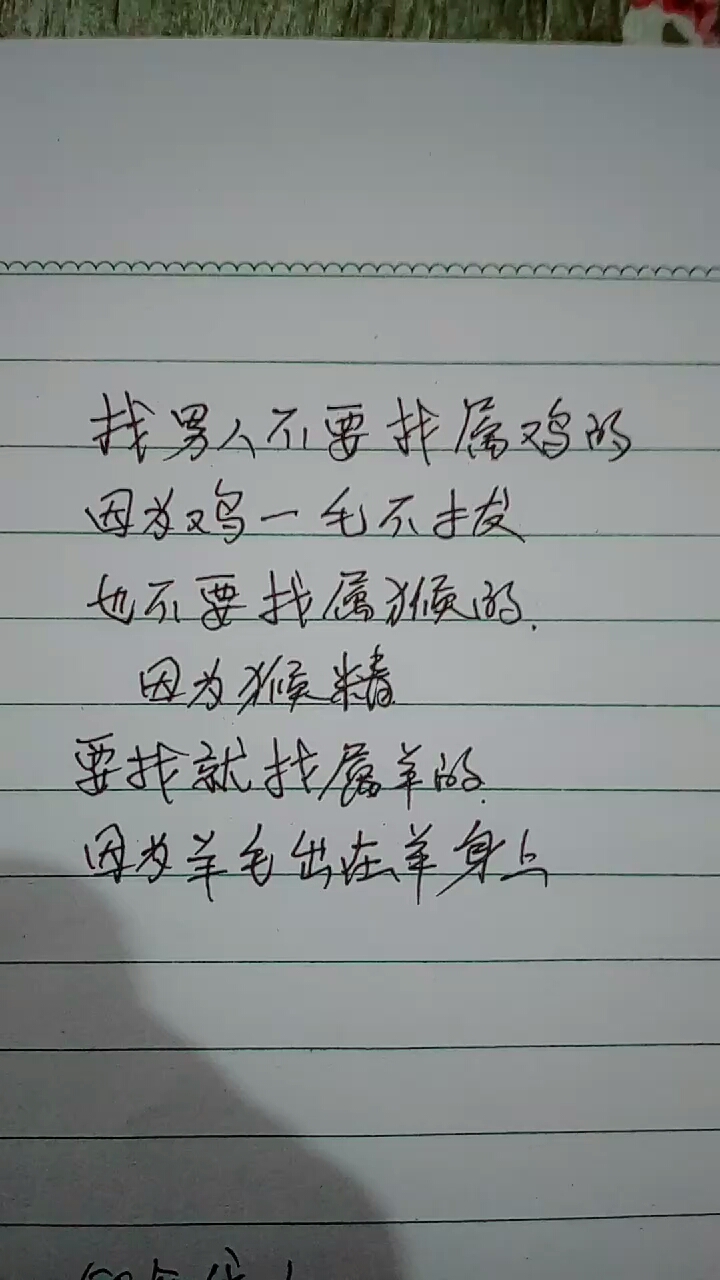 找男人不要找属鸡的
因为鸡一毛不拔
也不要找属猴的.
因为猴精
要找就找属羊的.
因为羊毛出在羊身上